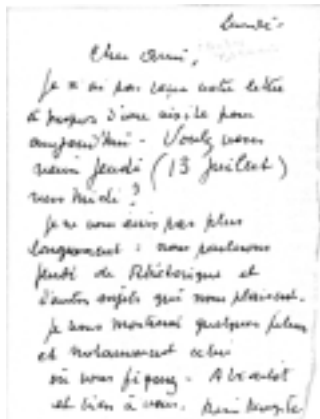 Lundi.
Cher ami,
Je n'ai pas reçu votre lettre
à propos d'une visite pour
aujourd'hui - Voulez vous
venir jeudi (13 juillet)
vers midi ?
Je ne vous écris pas plus
longuement : nous parlerons
jeudi de Rhétorique et
d'autres sujets qui nous plaisent.
Je vous montrerai quelques films
et notamment celui
où vous figurez - A bientôt
et bien à vous.